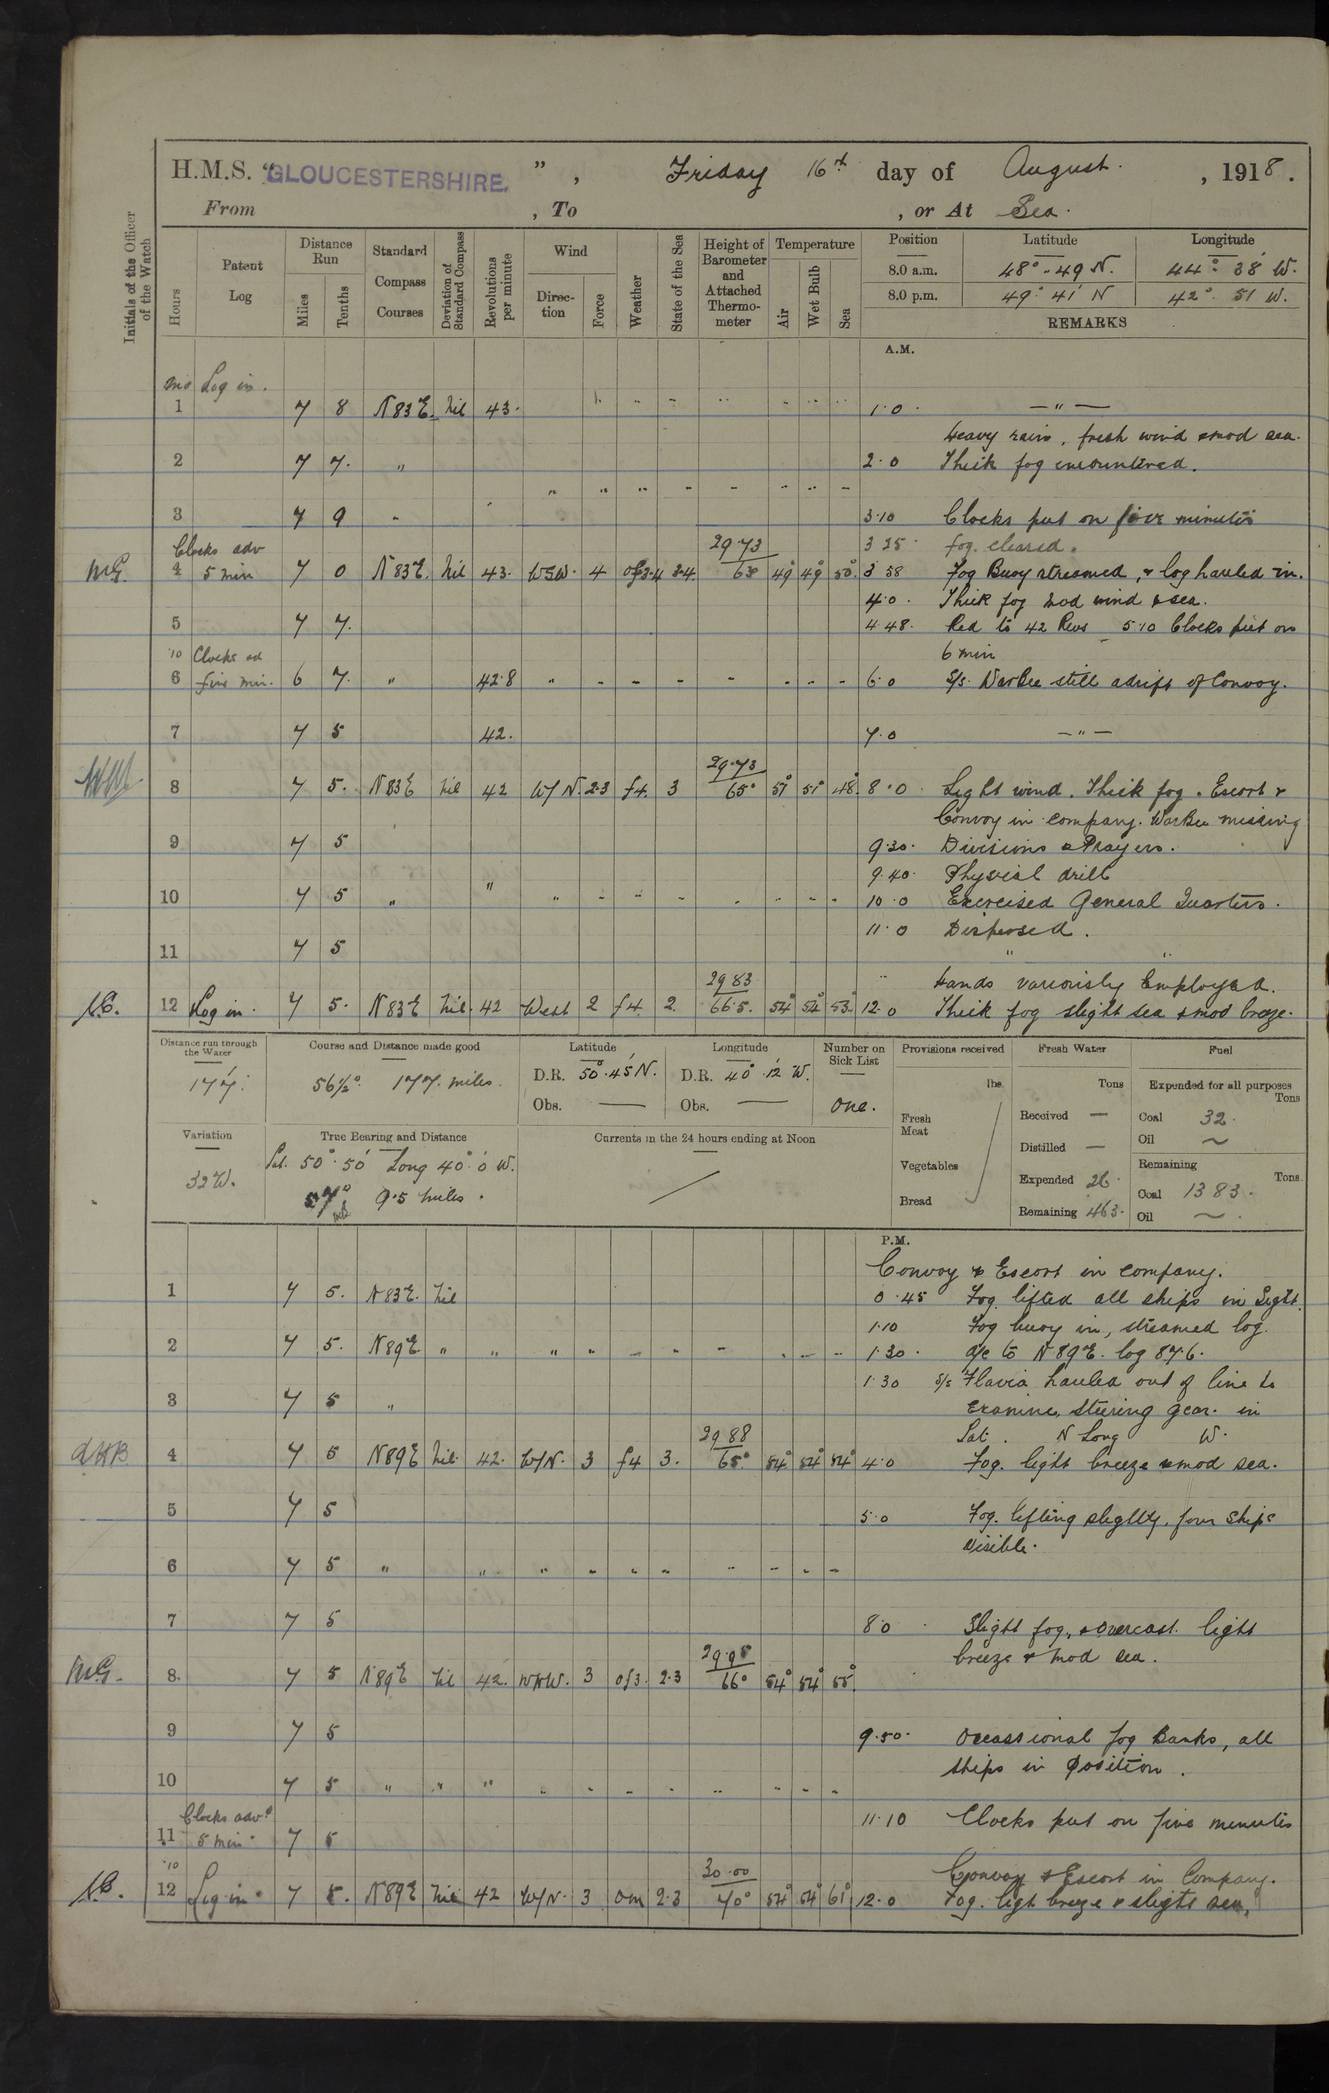 H.M.S. "GLOUCESTERSHIRE.", Friday 16th day of August. , 1918.
From , To , or At Sea.
Initials of the Officer of the Watch
Hours
Patent Log
Distance Run
Miles
Tenths
Standard Compass Courses
Deviation of Standard Compass
Revolutions per minute
Wind
Direction
Force
Weather
State of the Sea
Height of Barometer and Attached Thermometer
Temperature
Air
Wet Bulb
Sea
Position Latitude Longitude
8.0 a.m. 48° - 49 N. 44° 38' W.
8.0 p.m. 49° 41' N 42° 51 W.
REMARKS
A.M.
Log in.
1 7 8 N 83 E. Nil 43. 1.0 - " -
Heavy rain, fresh wind & mod sea.
2 7 7. " 2.0 Thick fog encountered.
3 7 9 3.10 Clocks put on five minutes
Clocks adv 29.73 3 25 fog cleared.
4 5 min 7 0 N 83 E. Nil 43. WSW. 4 3.4 68 49° 49° 50° 3 58 Fog Buoy streamed, & log hauled in.
4.0. Thick fog mod wind & sea.
5 7 7. 4 48. Red to 42 Revs 5.10 Clocks put on
10 Clocks ad 6 min
6 five min. 6 7. " 42.8 6.0 S/S. War Bee still adrift of Convoy.
7 7 5 42. 7.0 - " -
29.73
8 7 5. N 83 E Nil 42 W/N. 2.3 f4. 3 65° 51° 51° 48° 8.0 Light wind. Thick fog. Escort &
Convoy in company. War Bee missing
9 7 5 9.30. Divisions & Prayers.
9.40. Physical drill
10 7 5 " 10.0 Exercised General Quarters.
11.0 Dispersed.
11 7 5
29 83 Hands variously Employed.
12 Log in. 7 5. N 83 E Nil. 42 West 2 f4. 2. 66.5. 54° 54° 53° 12.0 Thick fog slight sea & mod breeze.
Distance run through the Water
177.
Course and Distance made good
56½° 177. miles.
Latitude
D.R. 50° 45' N.
Obs. —
Longitude
D.R. 40° 12' W.
Obs. —
Number on Sick List
One.
Provisions received
lbs.
Fresh Meat
Vegetables
Bread
Fresh Water
Tons
Received —
Distilled —
Expended 26.
Remaining 463.
Fuel
Expended for all purposes
Tons
Coal 32.
Oil ~
Remaining
Tons
Coal 1383.
Oil ~
Variation
32 W.
True Bearing and Distance
Lat. 50° 50' Long 40° 0' W.
57° 9.5 miles.
Currents in the 24 hours ending at Noon
P.M.
Convoy & Escort in company.
1 7 5. N 83 E. Nil 0.45 Fog lifted all ships in Sight.
1.10 Fog buoy in, streamed log.
2 7 5. N 89 E " " " 1.30. a/c to N 89 E. log 87.6.
1.30 S/S Flavia hauled out of line to
3 7 5 " Examine steering gear. in
29 88 Lat. N Long W.
4 7 5 N 89 E Nil. 42. W/N. 3 f4 3. 65° 54° 54° 54° 4.0 Fog. light breeze & mod sea.
5 7 5 5.0 Fog. lifting slightly, four Ships
visible.
6 7 5 " " "
7 7 5 8.0 Slight fog, & overcast light
breeze & mod sea.
8. 7 5 N 89 E Nil 42. WNW. 3 of3. 2.3 66° 54° 54° 55°
9 7 5 9.50. Occassional fog Banks, all
ships in position.
10 7 5 " " "
Clocks advd 11.10 Clocks put on five minutes
11 5 min. 7 5
10 30.00 Convoy & Escort in Company.
12 Log in. 7 5. N 89 E Nil 42 W/N. 3 om 2.3 70° 54° 54° 61° 12.0 Fog. ligh breeze & slight sea.